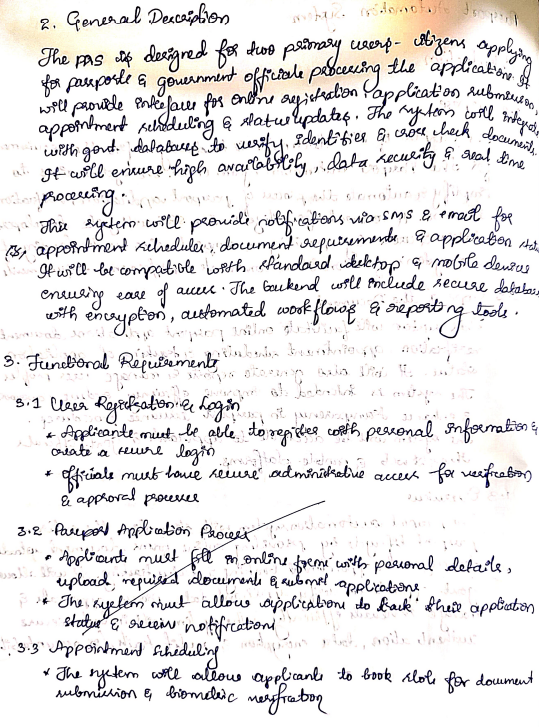 2. General Description
The PAS is designed for two primary users - citizens applying
for passports & government officials processing the applications. It
will provide interfaces for online registration, application submission,
appointment scheduling & status updates. The system will integrate
with govt. databases to verify identities & cross check documents.
It will ensure high availability, data security & real time
processing.
This system will provide notifications via SMS & email for
appointment schedules, document requirements & application
It will be compatible with standard desktop & mobile devices
ensuring ease of access. The backend will include secure database
with encryption, automated workflows & reporting tools.
3. Functional Requirements
3.1 User Registration & Login
* Applicants must be able to register with personal information &
create a secure login
* Officials must have secure administrative access for verification
& approval processes
3.2 Passport Application Process
* Applicants must fill in online forms with personal details,
upload required documents & submit applications
* The system must allow applications to track their application
status & receive notifications
3.3 Appointment Scheduling
* The system will allow applicants to book slots for document
submission & biometric verification